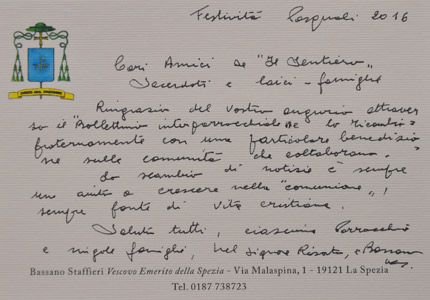 Festività Pasquali 2016
Cari Amici de "Il Sentiero„
Sacerdoti e laici - famiglie
Ringrazio del vostro augurio attraver
so il "Bollettino interparrocchiale" lo ricambio
fraternamente con una particolare benedizio
ne sulle comunità che collaborano.
Lo scambio di notizie è sempre
un aiuto a crescere nella "comunione„!
sempre fonte di vita cristiana.
Saluto tutti, ciascuna Parrocchia
e singole famiglie, nel Signore Risorto, + Bassano
Bassano Staffieri Vescovo Emerito della Spezia - Via Malaspina, 1 - 19121 La Spezia
Tel. 0187 738723